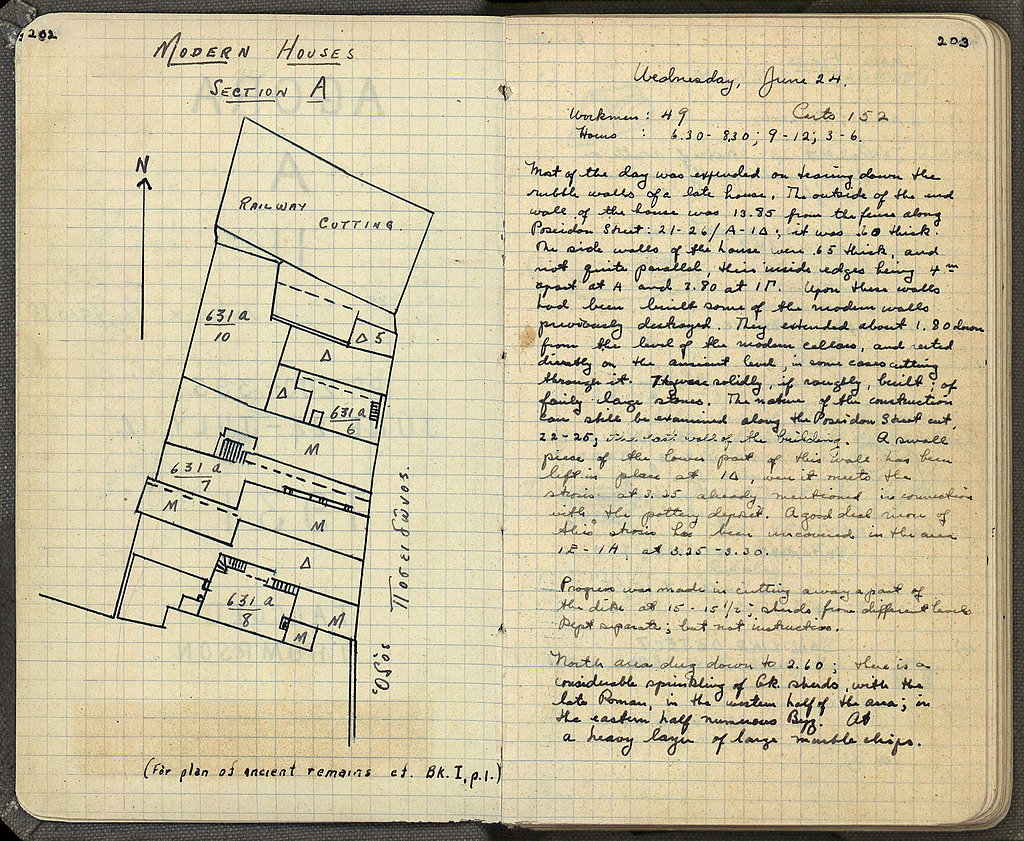 202
MODERN HOUSES
SECTION A
N
RAILWAY
CUTTING.
631a
10
Δ 5
Δ
Δ
631a
6
M
631a
7
M
M
Δ
631a
8
M
M
Ὁδὸς
Ποσειδῶνος.
(For plan of ancient remains cf. Bk. I, p.1.)
203
Wednesday, June 24.
Workmen: 49 Carts 152
Hours : 6.30-8.30; 9-12; 3-6.
Most of the day was expended on tearing down the
rubble walls of a late house. The outside of the end
wall of the house was 13.85 from the fence along
Poseidon Street: 21-26/A-1Δ; it was .60 thick.
The side walls of the house were .65 thick, and
not quite parallel, their inside edges being 4 m
apart at A and 3.80 at 1Γ. Upon these walls
had been built some of the modern walls
previously destroyed. They extended about 1.80 down
from the level of the modern cellars, and rested
directly on the ancient level, in some cases cutting
through it. They were solidly, if roughly, built, of
fairly large stones. The nature of the construction
can still be examined along the Poseidon Street cut,
22-25; the east wall of the building. A small
piece of the lower part of this wall has been
left in place at 1Δ, were it meets the
strosis at 3.25 already mentioned in connection
with the pottery deposit. A good deal more of
this strosis has been uncovered in the area
1E-1H, at 3.25-3.30.
Progress was made in cutting away a part of
the dike at 15-15 1/2; sherds from different levels
kept separate; but not instructive.
North area dug down to 2.60; there is a
considerable sprinkling of Gk. sherds, with the
late Roman, in the western half of the area; in
the eastern half numerous Byz. At
a heavy layer of large marble chips.